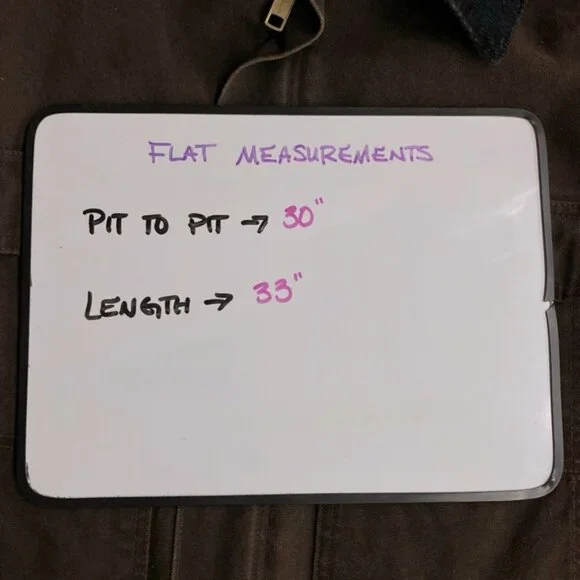 FLAT MEASUREMENTS
PIT TO PIT → 30"
LENGTH → 33"